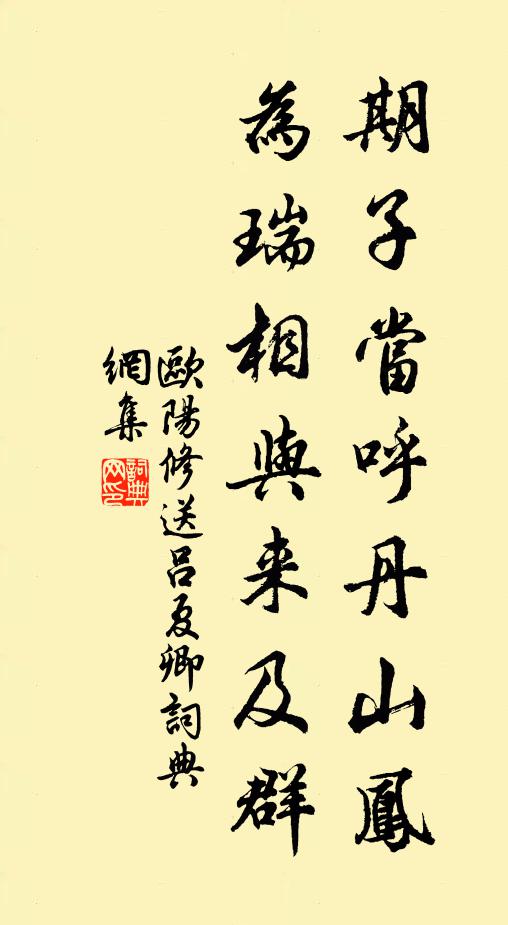 期子當呼丹山鳳
為瑞相與来及群
歐陽修送呂夏卿詞典
網集
詞典網印